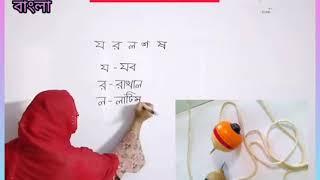 বাংলা
য র ল শ ষ
য - যব
র - রাখাল
ল - লাটিম